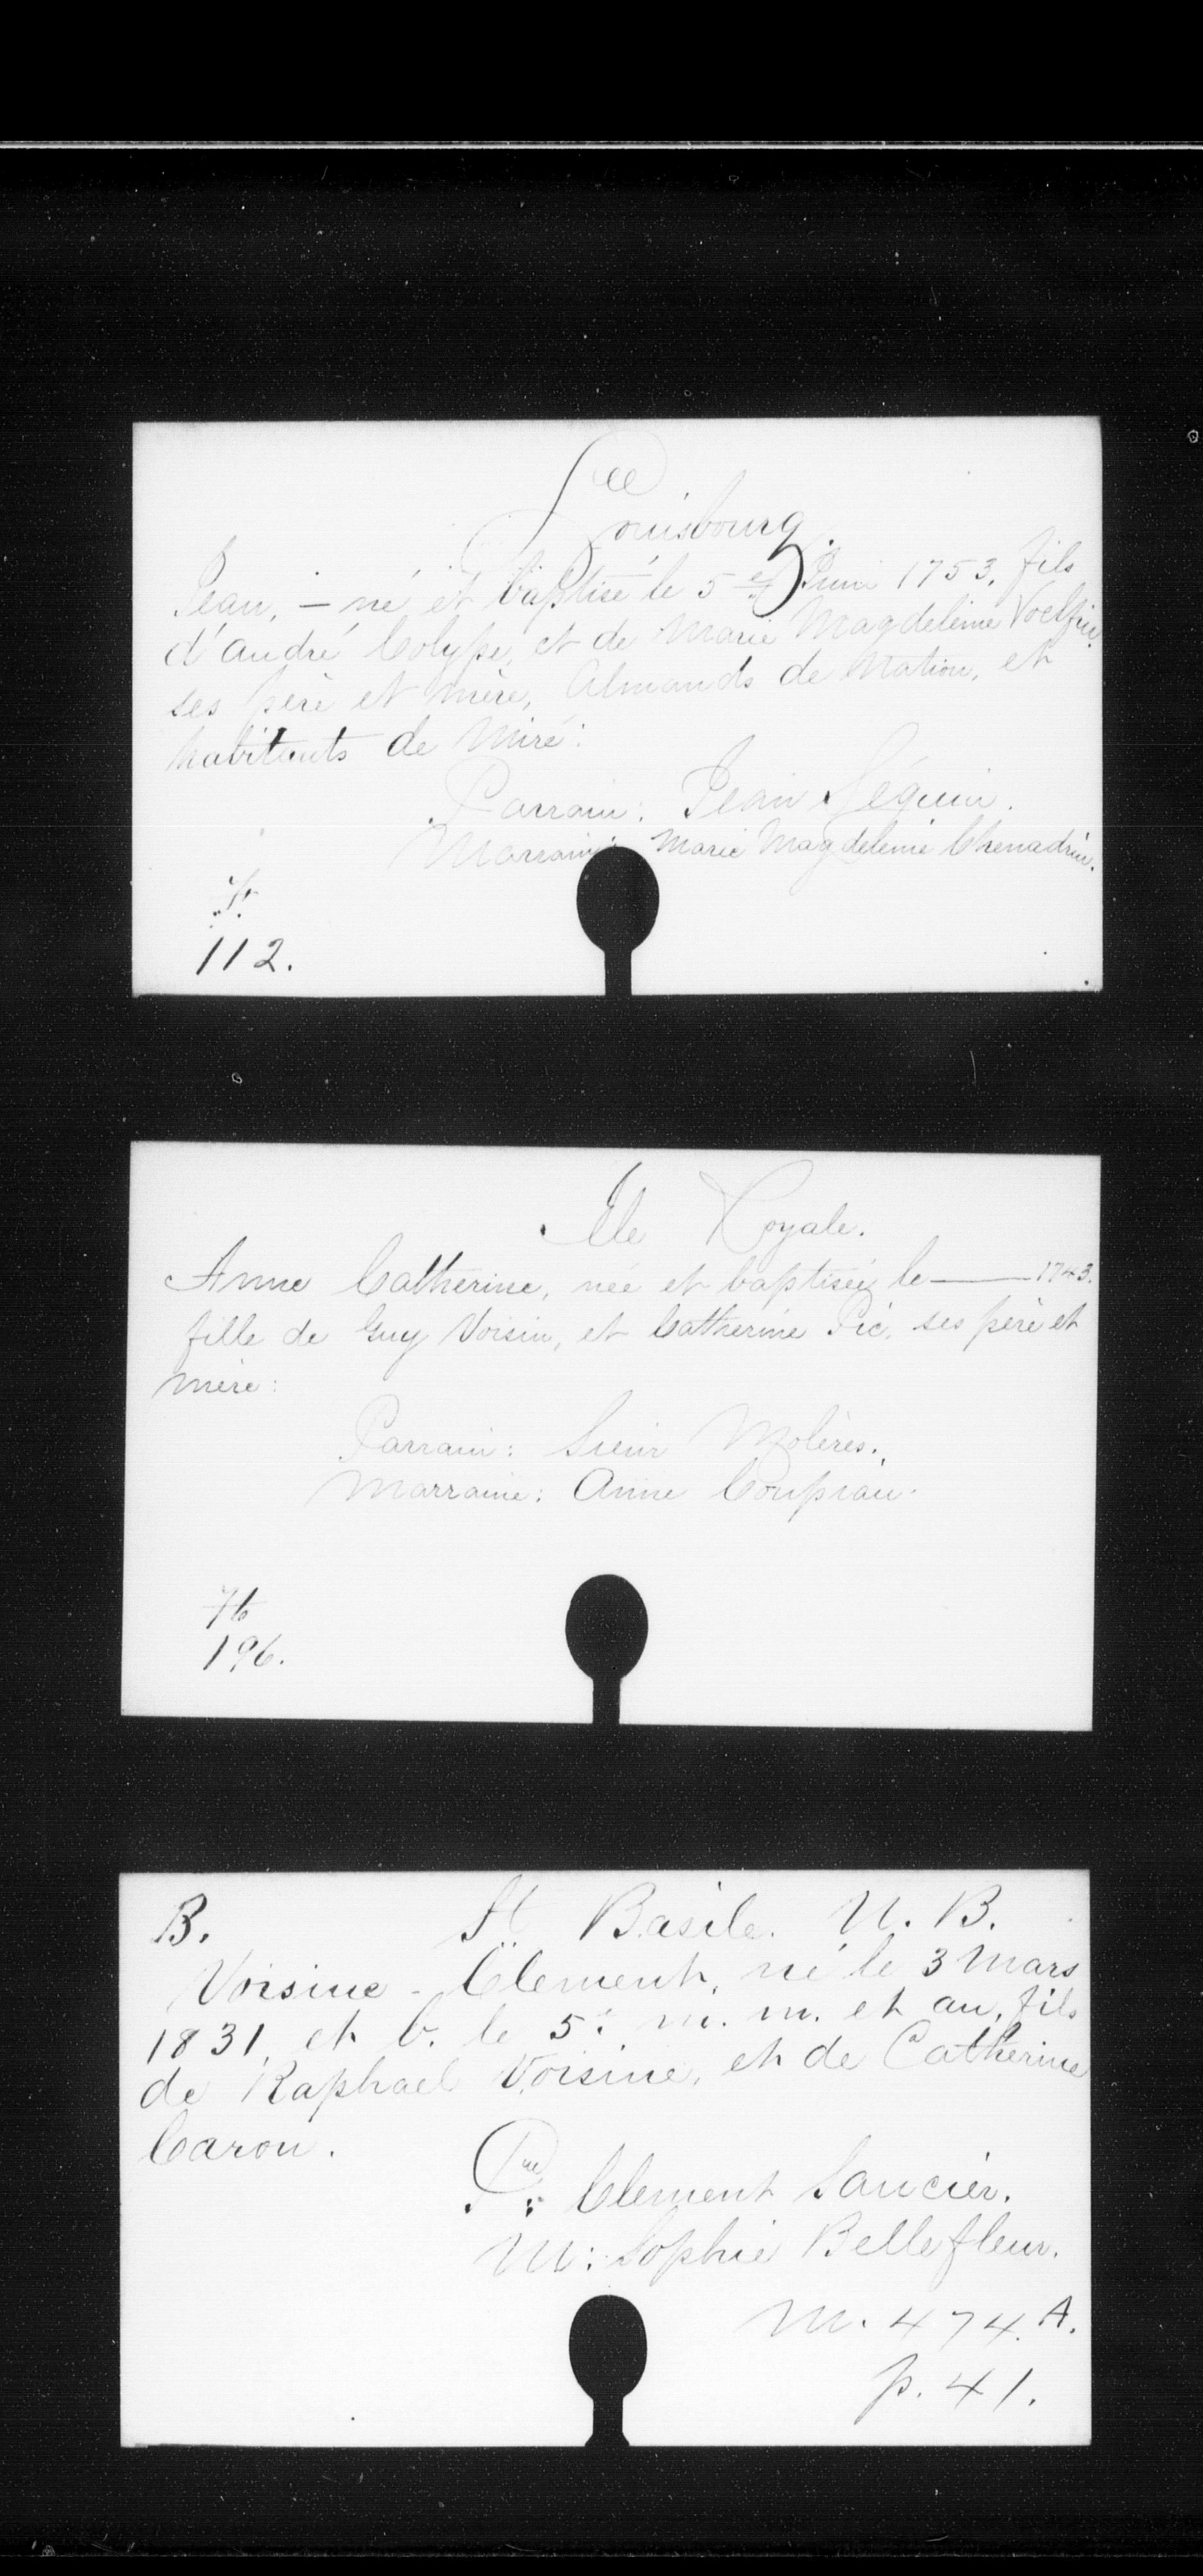 Louisbourg.
Jean, — né et baptisé le 5 Juin 1753. fils
d'André Colype, et de Marie Magdeleine
ses père et mère, Almands de Nation, et
habitants de Miré:
Parrain: Jean Séguin.
Marraine: Marie Magdeleine Chenadrin.
112.
Ile Royale.
Anne Catherine, née et baptisée le — 1743.
fille de Guy Voisin, et Catherine Pic, ses père et
mère:
Parrain: Sieur Molères.
Marraine: Anne Coupiau.
196.
B. St Basile. N. B.
Voisine - Clement, né le 3 Mars
1831, et b. le 5: m. m. et an, fils
de Raphael Voisine, et de Catherine
Caron.
P: Clement Saucier.
M: Sophie Bellefleur.
M. 474. A.
p. 41.